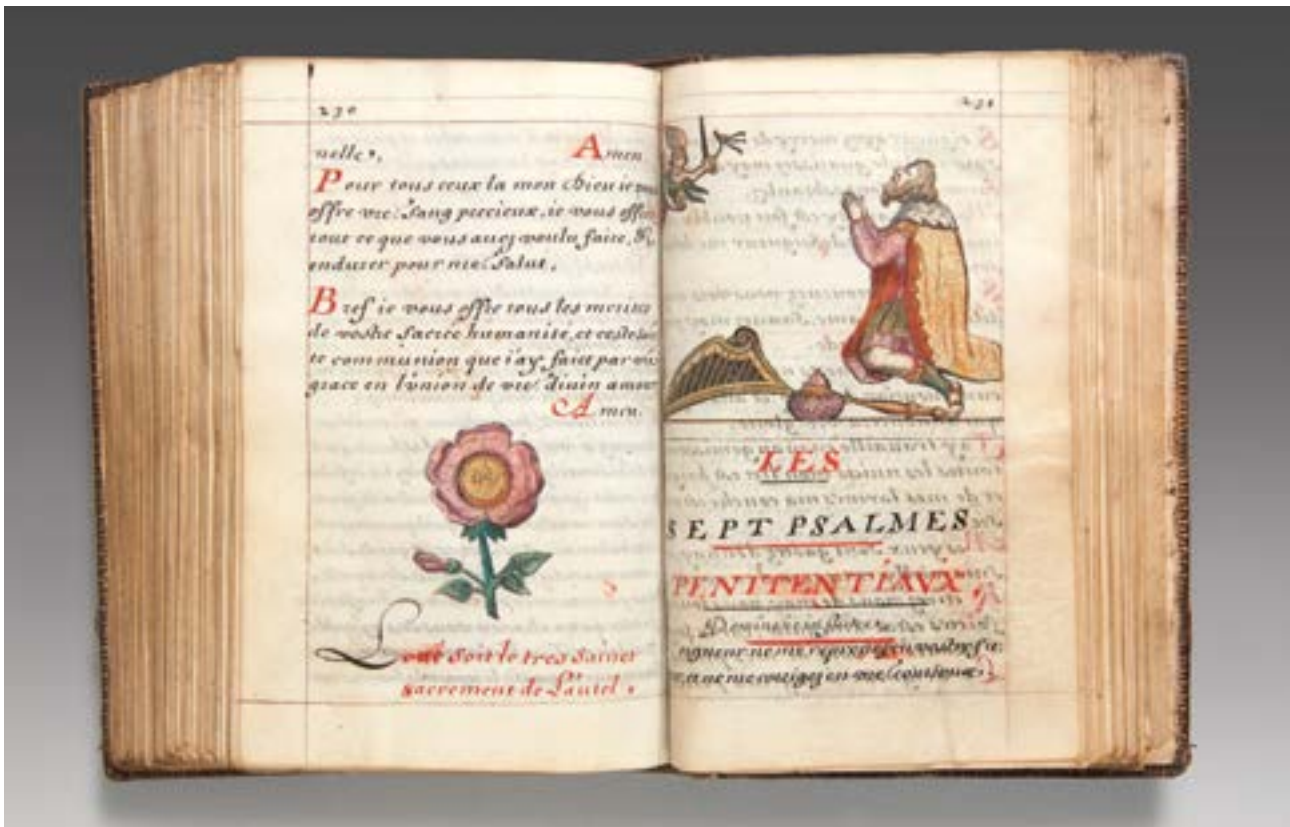 230
nelle. Amen
Pour tous ceux la mon Dieu ie
offre vre. Sang precieux, ie vous offre
tout ce que vous avez voulu faire, &
endurer pour me. Salut.
Bref ie vous offre tous les merites
de vostre sacree humanité, et ceste
te communion que i'ay faict par vre
grace en l'union de vre. divin amour
Amen.
Loué soit le tres sainct
sacrement de L'autel.
231
LES
SEPT PSALMES
PENITENTIAUX,
Domine
igneur ne me en vostre
et ne me corrigez en